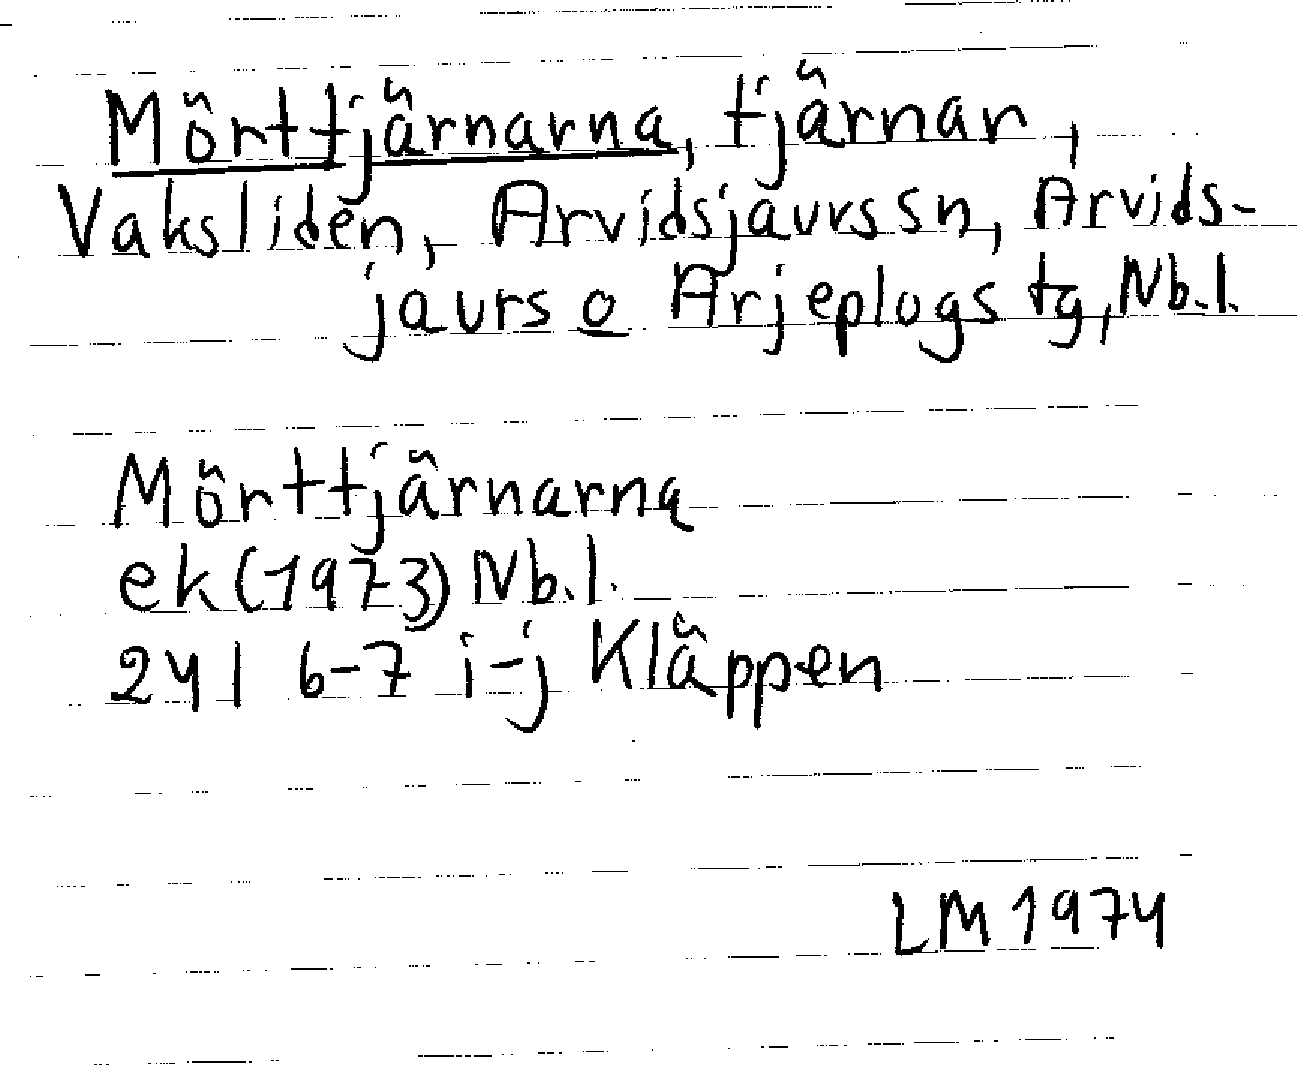 Mörttjärnarna, tjärnar,
Vaksliden, Arvidsjaurs sn, Arvids-
jaurs o Arjeplogs tg, Nb.l.
Mörttjärnarna
ek (1973) Nb.l.
24 I 6-7 i-j Kläppen
LM 1974